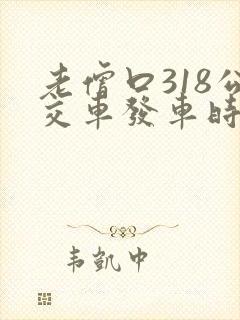 老僧口318公
交車發車時
韦凱中